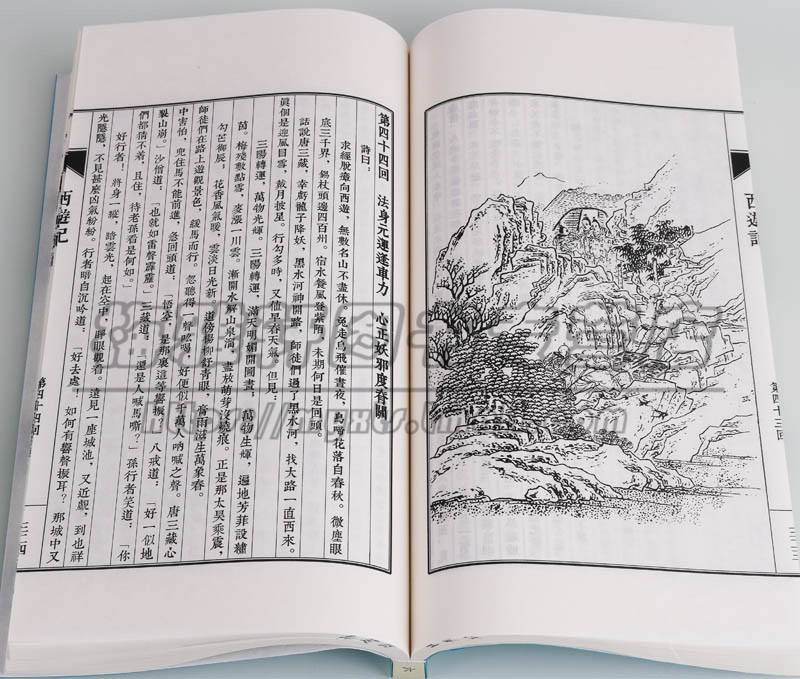 西遊記
第四十三回
三二三
第四十四回　法身元運逢車力　心正妖邪度脊關
詩曰：
求經脫瘴向西遊，無數名山不盡休。兔走烏飛催晝夜，鳥啼花落自春秋。微塵眼
底三千界，錫杖頭邊四百州。宿水餐風登紫陌，未期何日是回頭。
話說唐三藏，幸虧龍子降妖，黑水河神開路，師徒們過了黑水河，找大路一直西來。
真個是迎風冒雪，戴月披星。行勾多時，又值早春天氣。但見：
三陽轉運，萬物光輝。三陽轉運，滿天明媚開圖畫，萬物生輝，遍地芳菲設繡
茵。梅殘數點雪，麥漲一川雲。漸開冰解山泉溜，盡放萌芽沒燒痕。正是那太昊乘震，
勾芒御辰，花香風氣暖，雲淡日光新。道傍楊柳舒青眼，膏雨滋生萬象春。
師徒們在路上遊觀景色，緩馬而行。忽聽得一聲吆喝，好便似千萬人吶喊之聲。唐三藏心
中害怕，兜住馬不能前進，急回頭道：「悟空，是那裏這等響振？」八戒道：「好一似地
裂山崩。」沙僧道：「也就如雷聲霹靂。」三藏道：「還是人喊馬嘶？」孫行者笑道：「你
們都猜不着，且住，待老孫看是何如。」
好行者，將身一縱，踏雲光，起在空中，睜眼觀看。遠見一座城池，又近覷，到也祥
光隱隱，不見甚麼凶氣紛紛。行者暗自沉吟道：「好去處！如何有響聲振耳？那城中又
西遊記
第四十四回
三二四